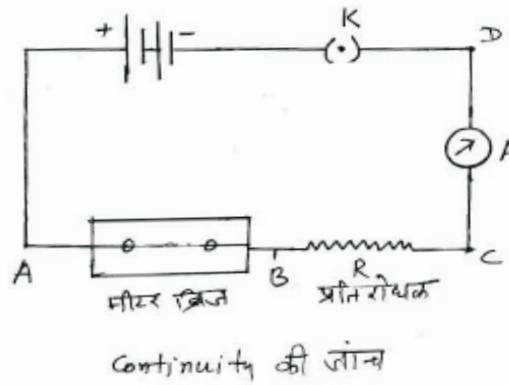 + - K D
A
A B R C
मीटर ब्रिज प्रतिरोधक
Continuity की जांच